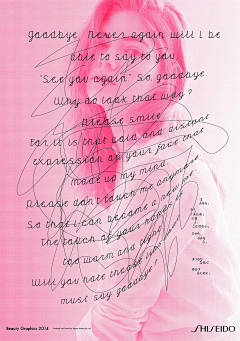 Goodbye. Never again will I be
able to say to you,
"See you again." So, goodbye.
Why do look that way?
Please smile.
For it is that said and distant
expression on your face that
made up my mind.
Please don't touch me anymore
So that I can become a new me
the touch of your hands is
too warm and
Will you hate
must say goodbye?
Beauty Graphics 2014
SHISEIDO